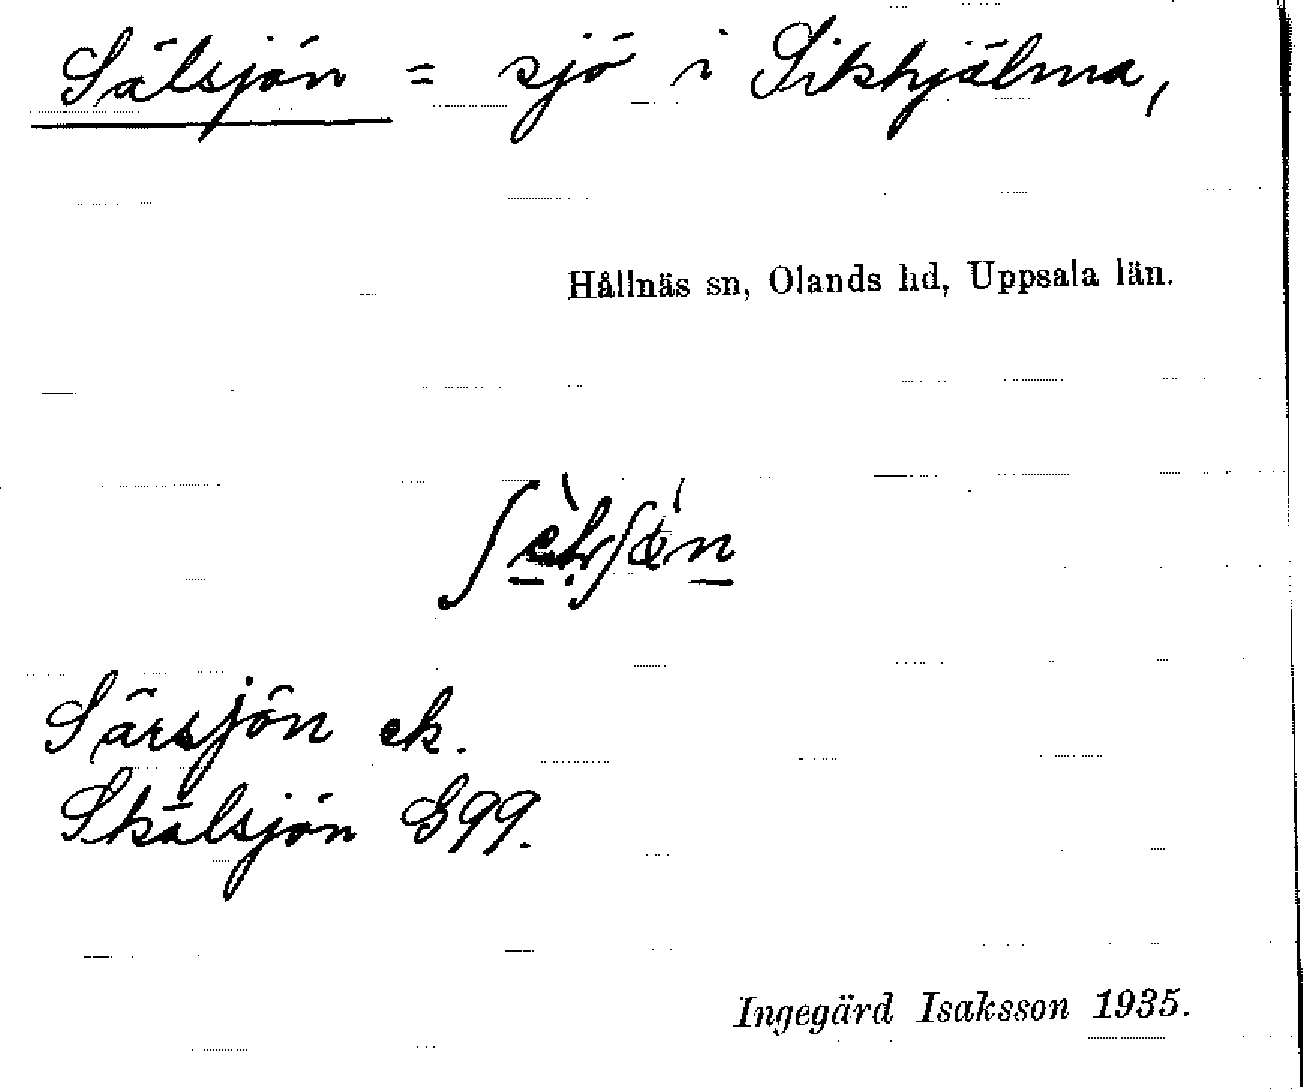 Sälsjön = sjö i Sikhjälma,
Hållnäs sn, Olands hd, Uppsala län.
Särsjön ek.
Skälsjön G99.
Ingegärd Isaksson 1935.